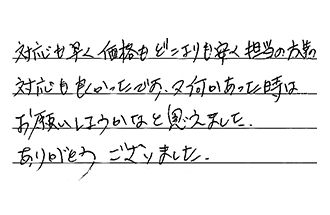 対応も早く価格もどこよりも安く担当の方の
対応も良かったです。又何かあった時は
お願いしようかなと思えました.
ありがとう ございました.